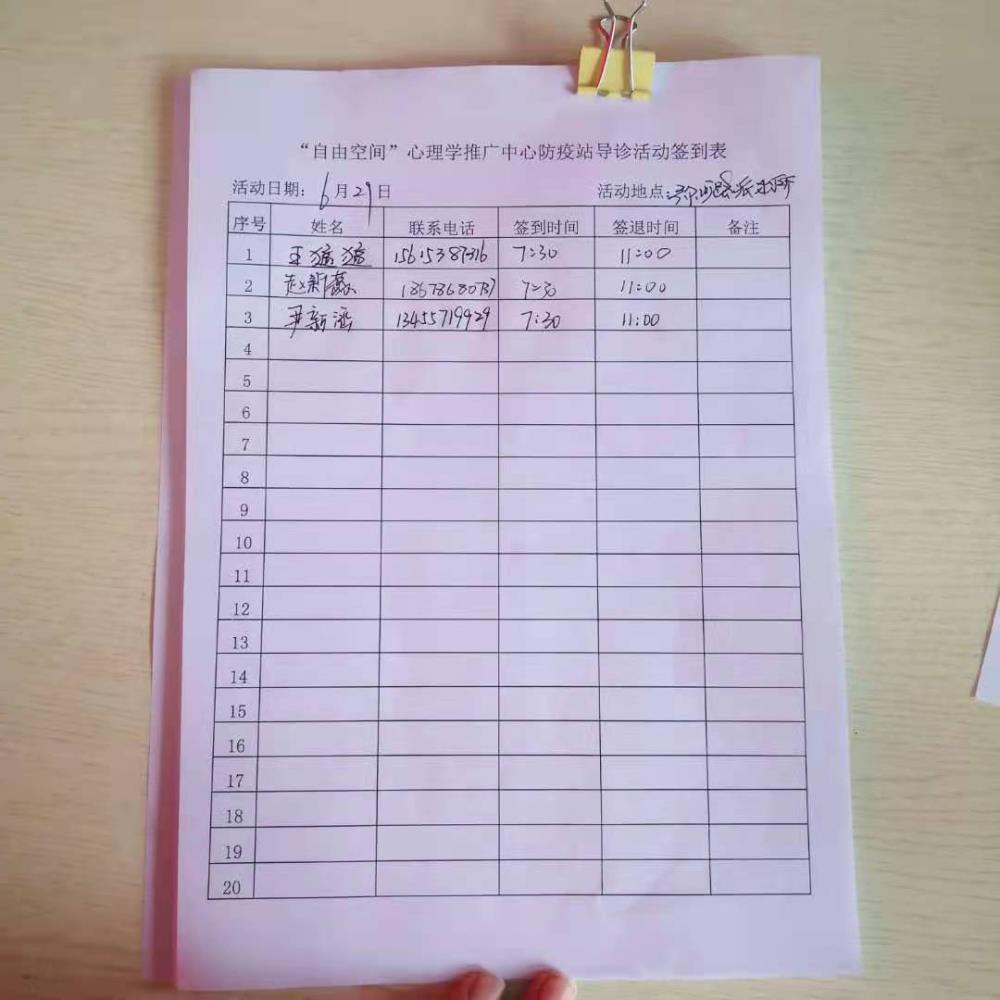 “自由空间”心理学推广中心防疫站导诊活动签到表
活动日期：6月29日 活动地点：派出所
序号 姓名 联系电话 签到时间 签退时间 备注
1 王猛猛 15615387316 7:30 11:00
2 赵新磊 7:30 11:00
3 尹新涵 13455719929 7:30 11:00
4
5
6
7
8
9
10
11
12
13
14
15
16
17
18
19
20